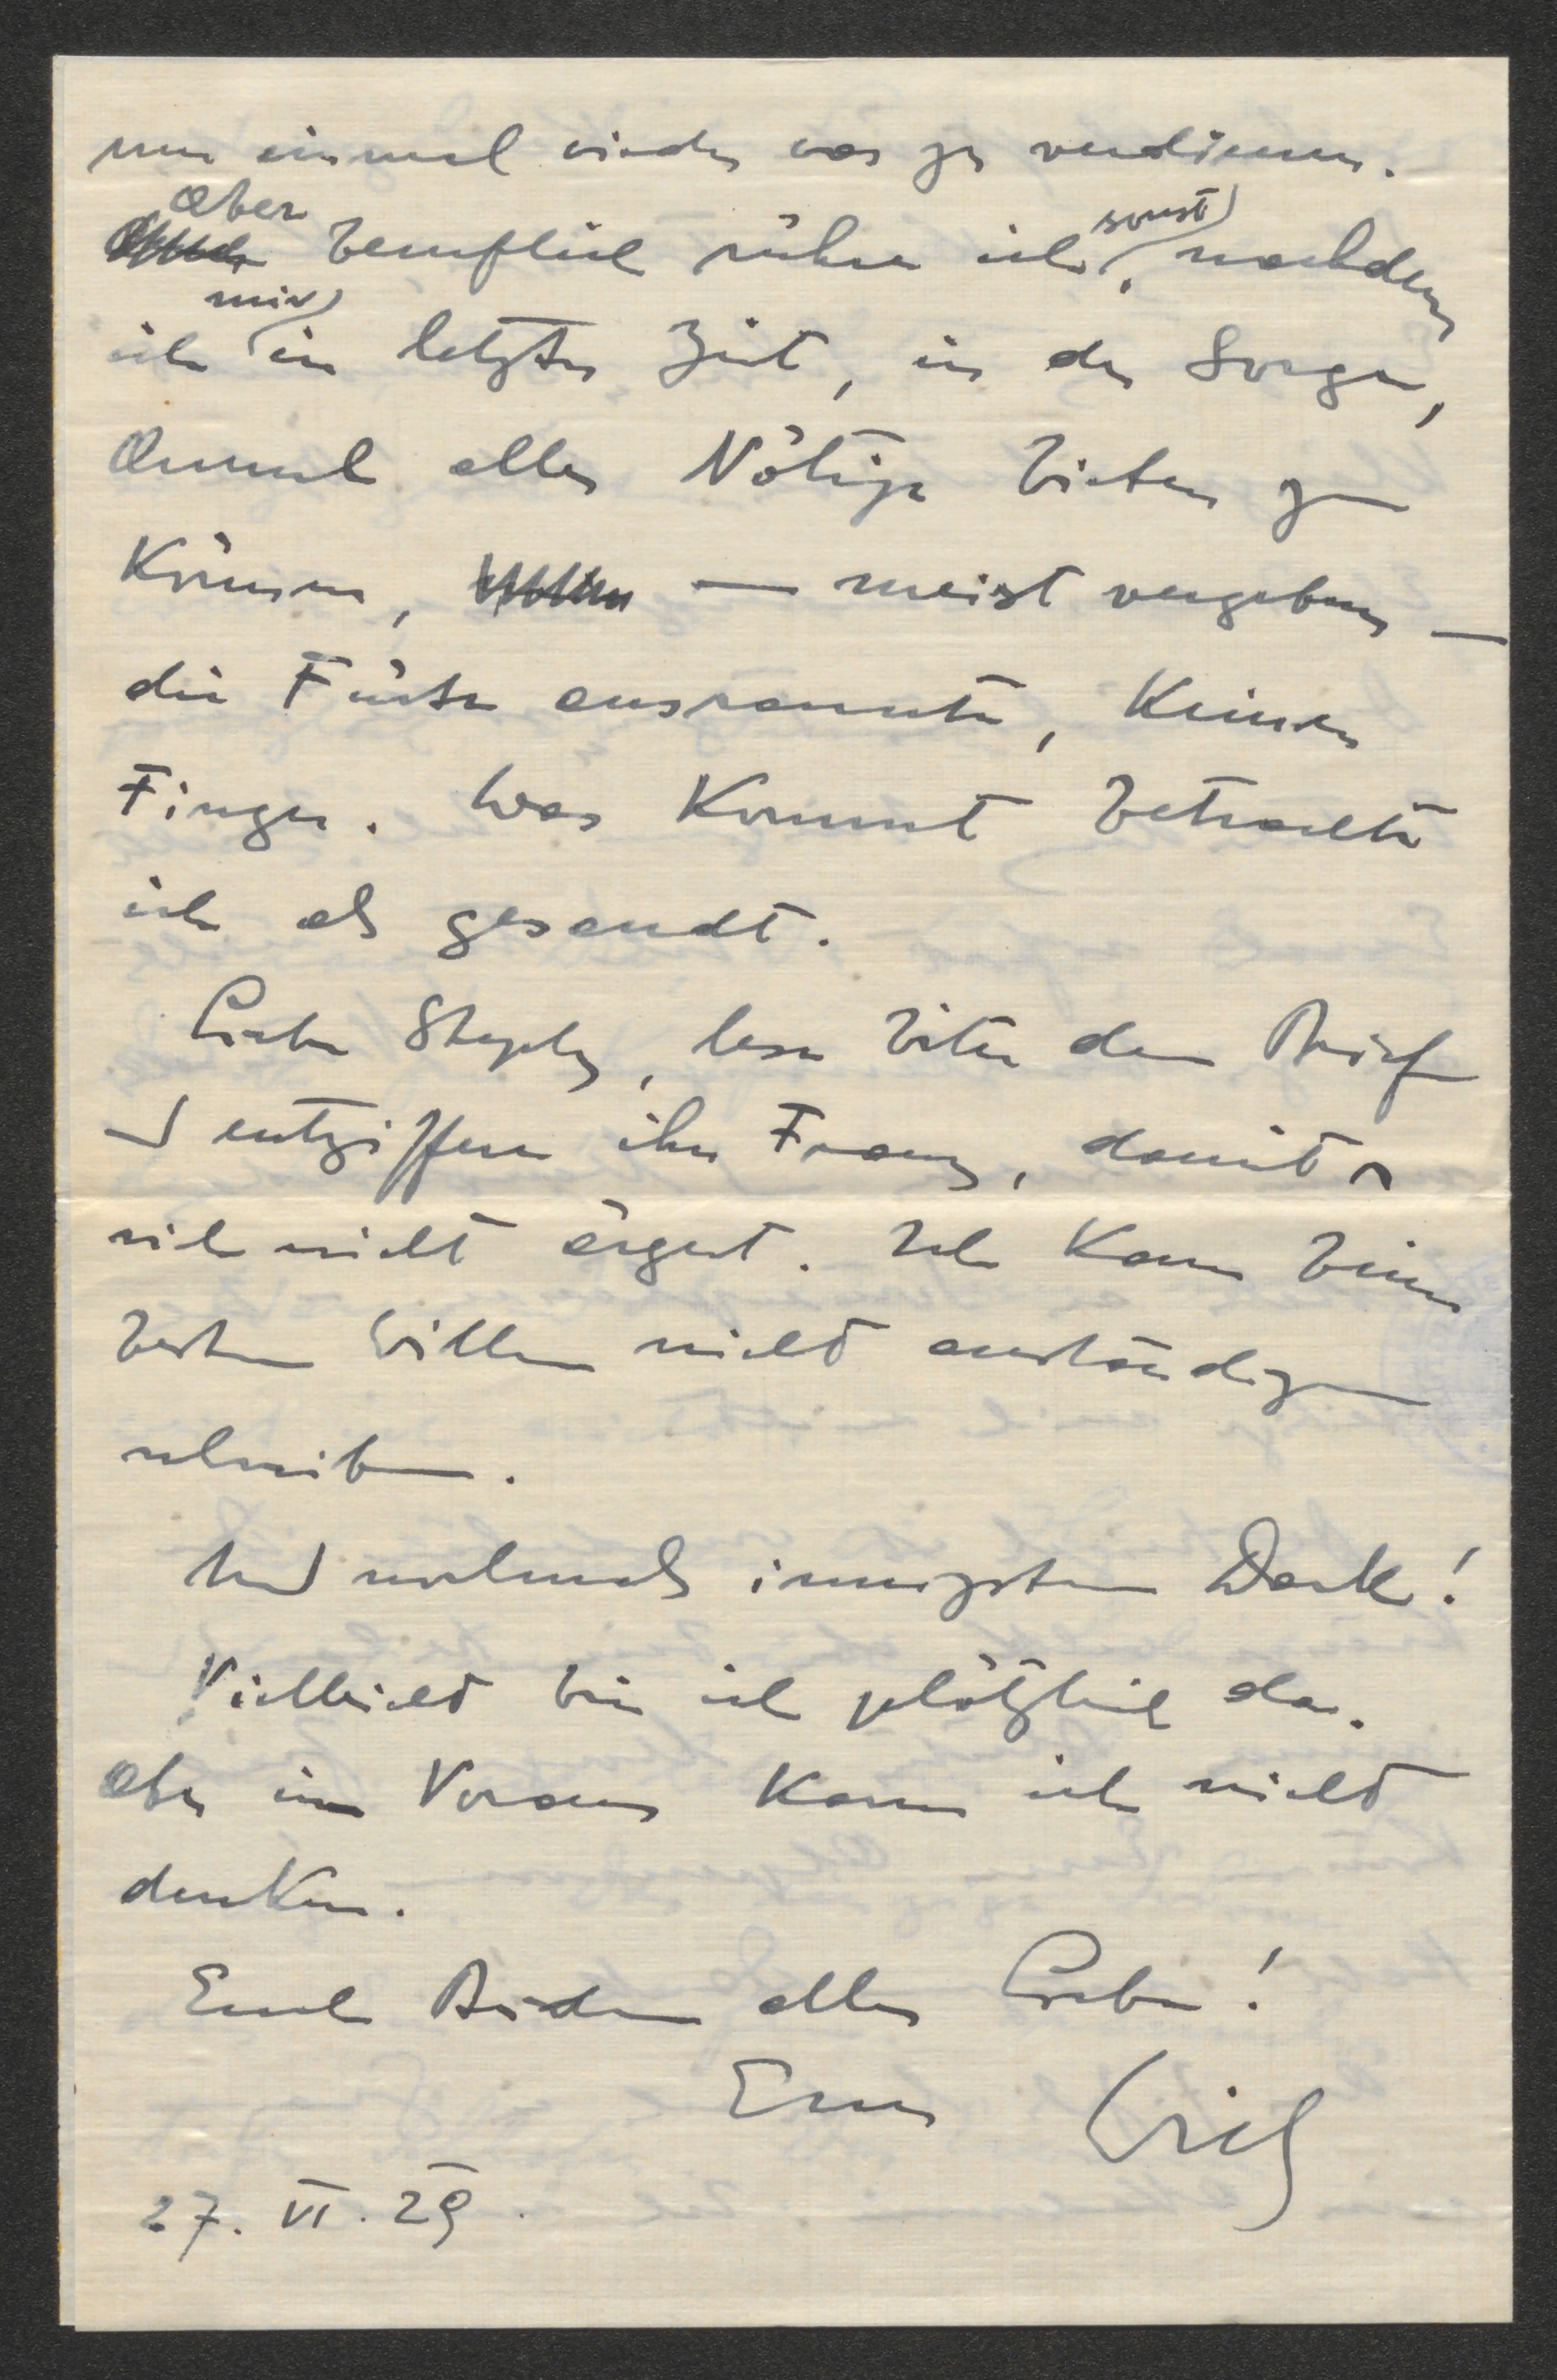 nun einmal wieder was zu verdienen.
Aber beruflich rühre ich sonst, nachdem
ich mir in letzter Zeit, in der Sorge,
Annerl alles Nötige bieten zu
können, — meist vergebens —
die Füsse ausrannte, keinen
Finger. Was kommt betrachte
ich als gesandt.
Liebe Steph, lese bitte den Brief
und entziffere ihn Franz, damit er
sich nicht ärgert. Ich kann beim
besten Willen nicht anständiger
schreiben.
Und nochmals innigsten Dank!
Vielleicht bin ich plötzlich da.
Aber im Voraus kann ich nicht
denken.
Euch Beiden alles Liebe!
Euer Erich
27. VI. 29.